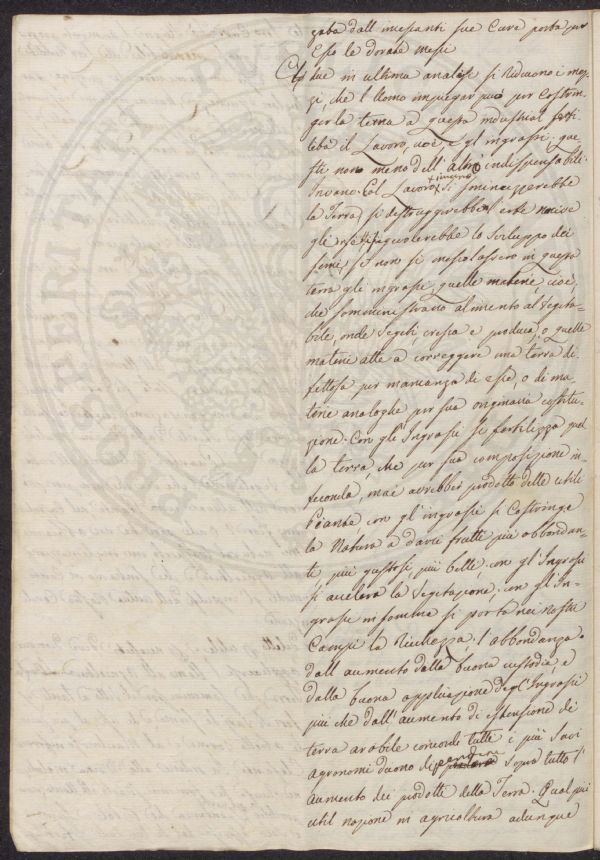 gaba dall' incessanti sue Cure porta per
Esso le dorate messi
due in ultima analise si riducono i mez-
zi, che l'Uomo impiegar può per costrin-
ger la terra a questa industrial ferti-
lità il Lavoro, cioè, e gl' ingrassi, que-
sti non meno dell' altro indispensabili.
Invano Col Lavoro si sminuzzerebbe
la Terra, si distruggerebber l' erbe nocive
gli insetti, si aguolerebbe lo sviluppo dei
semi, se non si mescolassero in questa
terra gli ingrassi, quelle materie, cioè,
che somministrano alimento al Vegeta-
bile, onde Vegeti, cresca e produca, o quelle
materie atte a correggere una terra di-
fettosa per mancanza di esse, o di ma-
terie analoghe per sua originaria costitu-
zione. Con gli' Ingrassi si fertilizza quel-
la terra, che per sua composizione in-
feconda, mai avrebbe prodotto delle utili
Piante con gl' ingrassi si Costringe
la Natura a darci frutti più abbondan-
ti, più gustosi, più belli; con gl' Ingrassi
si accelera la Vegetazione; con gl' In-
grassi in somma si porta nei nostri
Campi la Ricchezza, l' abbondanza.
dall' aumento dalla buona custodia, e
dalla buona applicazione degl' Ingrassi
più che dall' aumento di estensione di
terra arabile concorde tutti i più Savi
agronomi duono dipendere sopra tutto l'
aumento dei prodotti della Terra. Qual più
util nozione in agricoltura adunque